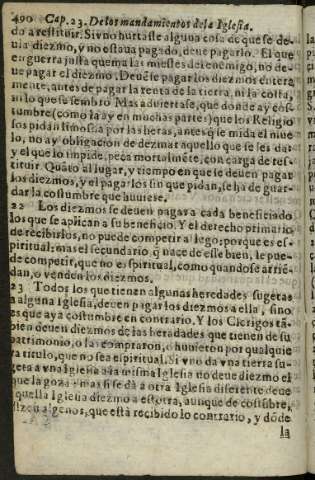 490 Cap. 23. De los mandamientos de la Iglesia.
do a restituir. Si vno hurtasse alguna cosa de que se de-
uia diezmo, y no estaua pagado, deue pagarlo. El que
en guerra justa quema las miesses del enemigo, no de-
ue pagar el diezmo. Deuese pagar los diezmos entera
mente, antes de pagar la renta de la tierra, ni la costa,
ni lo que se sembrò Mas aduiertase, que donde ay cos-
tumbre (como la ay en muchas partes) que los Religio
sos pidan limosna por las heras, antes q̃ se mida el nue
lo, no ay obligacion de dezmar aquello que se les da:
y el que lo impide, peca mortalmẽte, con carga de res-
tituir. Quãto al lugar, y tiempo en que se deuen pagar
los diezmos, y el pagarlos sin que pidan, se ha de guar-
dar la costumbre que huuiese.
22 Los diezmos se deuen pagar a cada beneficiado
los que se aplican a su beneficio. Y el derecho primario
de recibirlos, no puede competir a lego: porque es es-
piritual: mas el secundario q̃ nace de esse bien, le pue-
de competir, que no es spiritual, como quando se arriẽ-
dan, o venden los diezmos.
23 Todos los que tienen algunas heredades sugetas
a alguna Iglesia, deuen pagar los diezmos a ella, sino
es que aya costumbre en contrario. Y los Clerigos tã-
bien deuen diezmos de las heradades que tienen de su
patrimonio, o las compraron, o huuieron por qualquie
ra titulo, que no sea espiritual. Si vno da vna tierra su-
geta a vna Iglesia a la misma Iglesia no deue diezmo el
que la goza: mas si se dà a otra Iglesia diferente deue
aquella Iglesia diezmo a estotra, aunque de costũbre,
dizen algunos, que està recibido lo contrario, y dõde
la